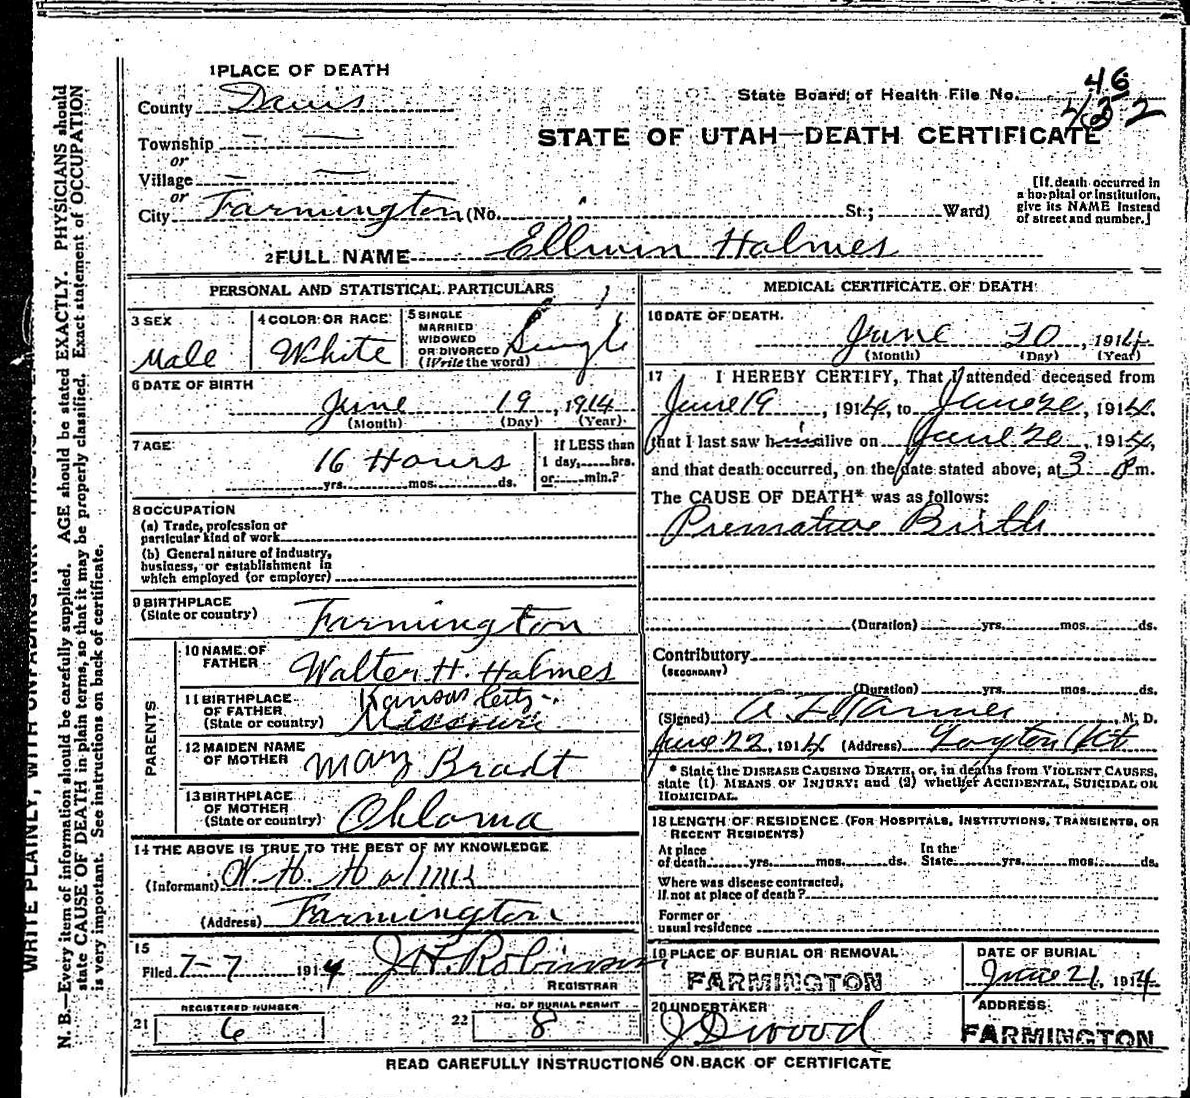 WRITE PLAINLY, WITH UNFADING INK
N. B.—Every item of information should be carefully supplied. AGE should be stated EXACTLY. PHYSICIANS should
state CAUSE OF DEATH in plain terms, so that it may be properly classified. Exact statement of OCCUPATION
is very important. See instructions on back of certificate.
1 PLACE OF DEATH
County Davis
State Board of Health File No. 46
Township
STATE OF UTAH—DEATH CERTIFICATE
or
Village
or
City Farmington (No. St.; Ward)
[If death occurred in
a hospital or institution,
give its NAME instead
of street and number.]
2 FULL NAME Ellwin Holmes
PERSONAL AND STATISTICAL PARTICULARS
3 SEX
Male
4 COLOR OR RACE
White
5 SINGLE
MARRIED
WIDOWED
OR DIVORCED
(Write the word)
Single
6 DATE OF BIRTH
June 19, 1914
(Month) (Day) (Year)
7 AGE
16 Hours
yrs. mos. ds.
If LESS than
1 day, hrs.
or min.?
8 OCCUPATION
(a) Trade, profession or
particular kind of work
(b) General nature of industry,
business, or establishment in
which employed (or employer)
9 BIRTHPLACE
(State or country)
Farmington
PARENTS
10 NAME OF
FATHER
Walter H. Holmes
11 BIRTHPLACE
OF FATHER
(State or country)
Kansas City
Missouri
12 MAIDEN NAME
OF MOTHER
Mary Bradt
13 BIRTHPLACE
OF MOTHER
(State or country)
Okloma
14 THE ABOVE IS TRUE TO THE BEST OF MY KNOWLEDGE
(Informant) W. H. Holmes
(Address) Farmington
15
Filed 7-7 1914 J H Robinson
REGISTRAR
REGISTERED NUMBER
21 6
NO. OF BURIAL PERMIT
22 8
MEDICAL CERTIFICATE OF DEATH
16 DATE OF DEATH
June 20, 1914
(Month) (Day) (Year)
17 I HEREBY CERTIFY, That I attended deceased from
June 19, 1914, to June 20, 1914,
that I last saw him alive on June 20, 1914,
and that death occurred, on the date stated above, at 3 P m.
The CAUSE OF DEATH* was as follows:
Premature Birth
(Duration) yrs. mos. ds.
Contributory
(SECONDARY)
(Duration) yrs. mos. ds.
(Signed) , M. D.
June 22, 1914 (Address) Layton Ut
* State the DISEASE CAUSING DEATH, or, in deaths from VIOLENT CAUSES,
state (1) MEANS OF INJURY; and (2) whether ACCIDENTAL, SUICIDAL OR
HOMICIDAL.
18 LENGTH OF RESIDENCE (FOR HOSPITALS, INSTITUTIONS, TRANSIENTS, OR
RECENT RESIDENTS)
At place
of death yrs. mos. ds.
In the
State yrs. mos. ds.
Where was disease contracted,
if not at place of death?
Former or
usual residence
19 PLACE OF BURIAL OR REMOVAL
FARMINGTON
DATE OF BURIAL
June 21, 1914
20 UNDERTAKER
J D Wood
ADDRESS
FARMINGTON
READ CAREFULLY INSTRUCTIONS ON BACK OF CERTIFICATE